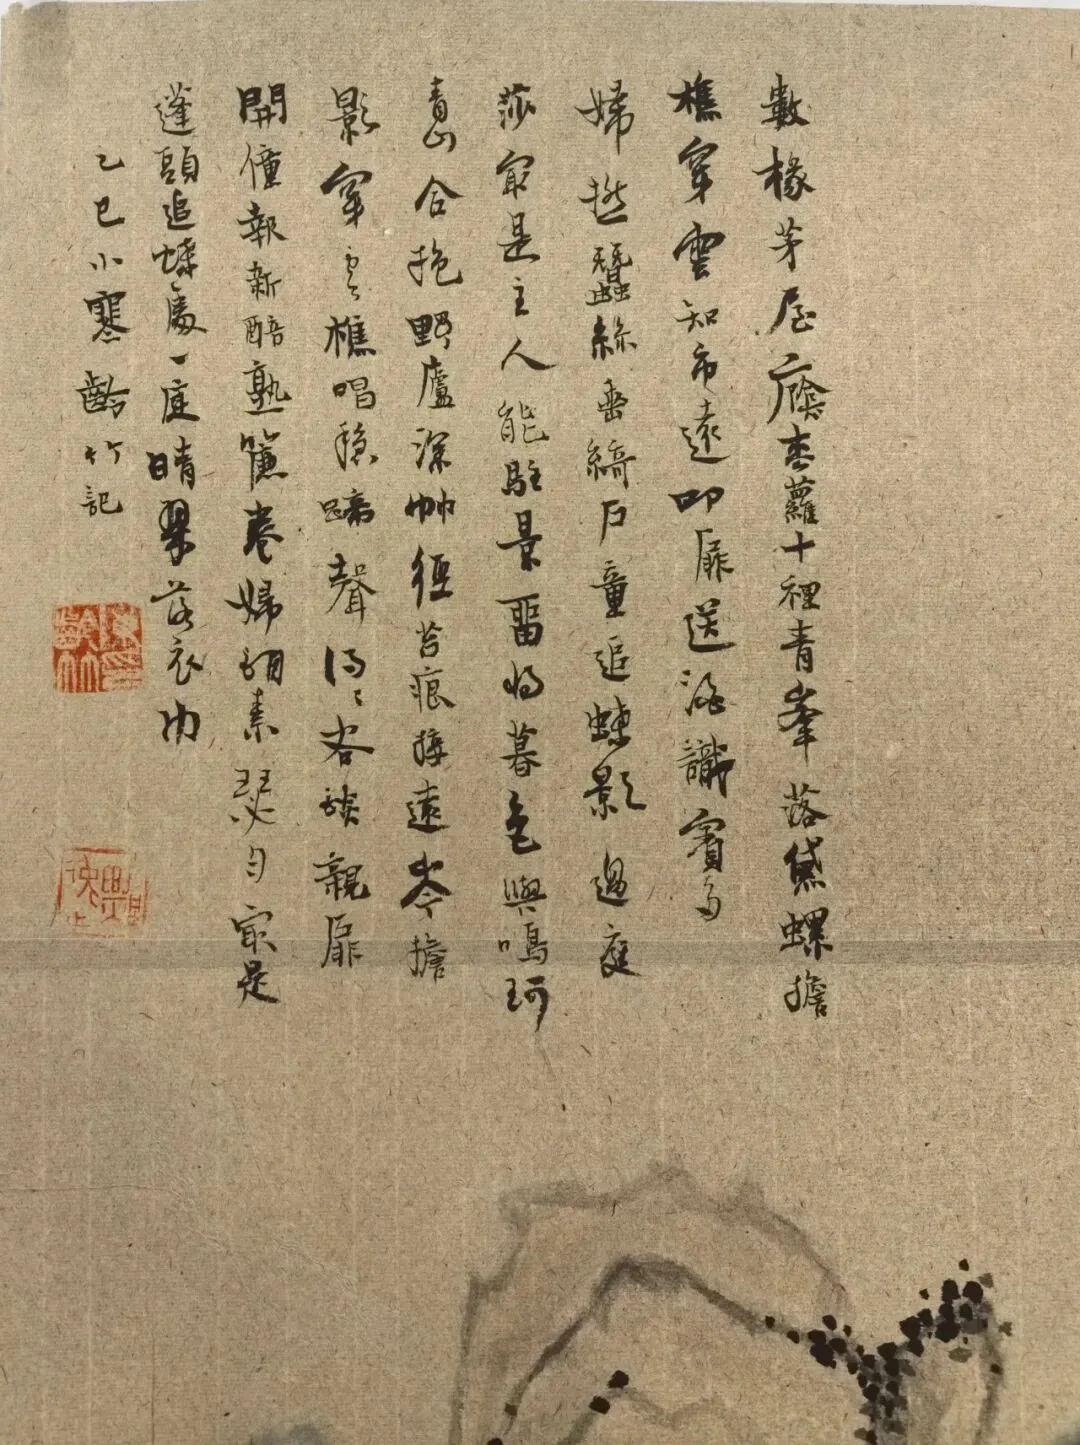 數椽茅屋蔭杏蘿十裡青峯落黛螺擔
樵穿雲知市遠叩扉送酒識賓多
婦撚蠶絲垂綺戶童追蝶影過庭
莎最是主人能駐景留將暮色與鳴珂
青山合抱野廬深帅徑苔痕接遠岑擔
影穿雲樵唱穩蹄聲得得客談親扉
開僮報新醅熟簾卷婦調素瑟勻最是
蓬頭追蝶處一庭晴翠落衣巾
乙巳小寒齡竹記